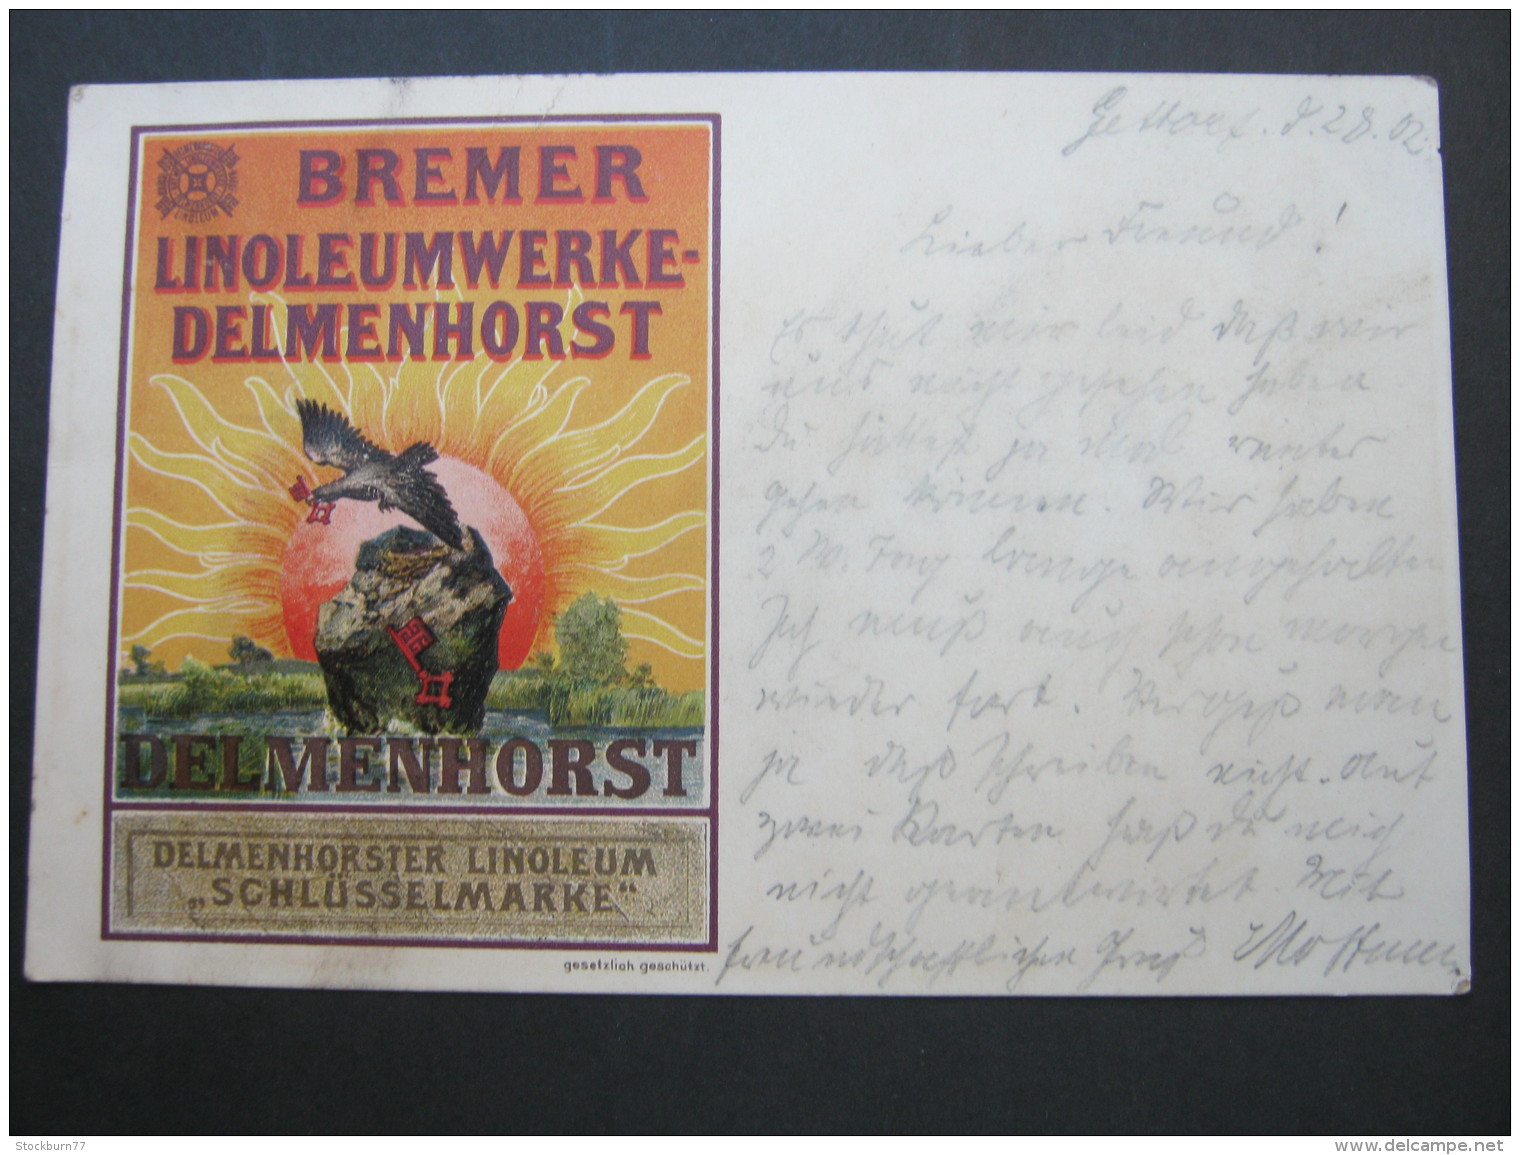 BREMER
LINOLEUMWERKE-
DELMENHORST
LINOLEUM
DELMENHORST
DELMENHORSTER LINOLEUM
„SCHLÜSSELMARKE“
gesetzlich geschützt.
Gettorf. d. 28. 02.
Lieber Freund!
Es thut mir leid daß wir
uns nicht gesehen haben
Du hättest ja mal
gehen können. Wir haben
2 lange angehalten
Ich muß auch schon morgen
wieder fort. Vergiß man
ja daß Schreiben nicht. Auf
zwei Karten hast du mich
nicht geantwortet. Mit
freundschaftlichen Gruß
Stockburn77
www.delcampe.net